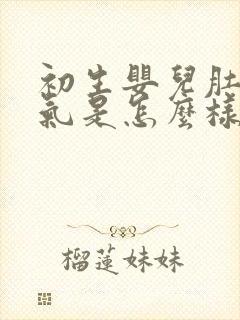 初生嬰兒肚
氣是怎麼樣
榴蓮妹妹